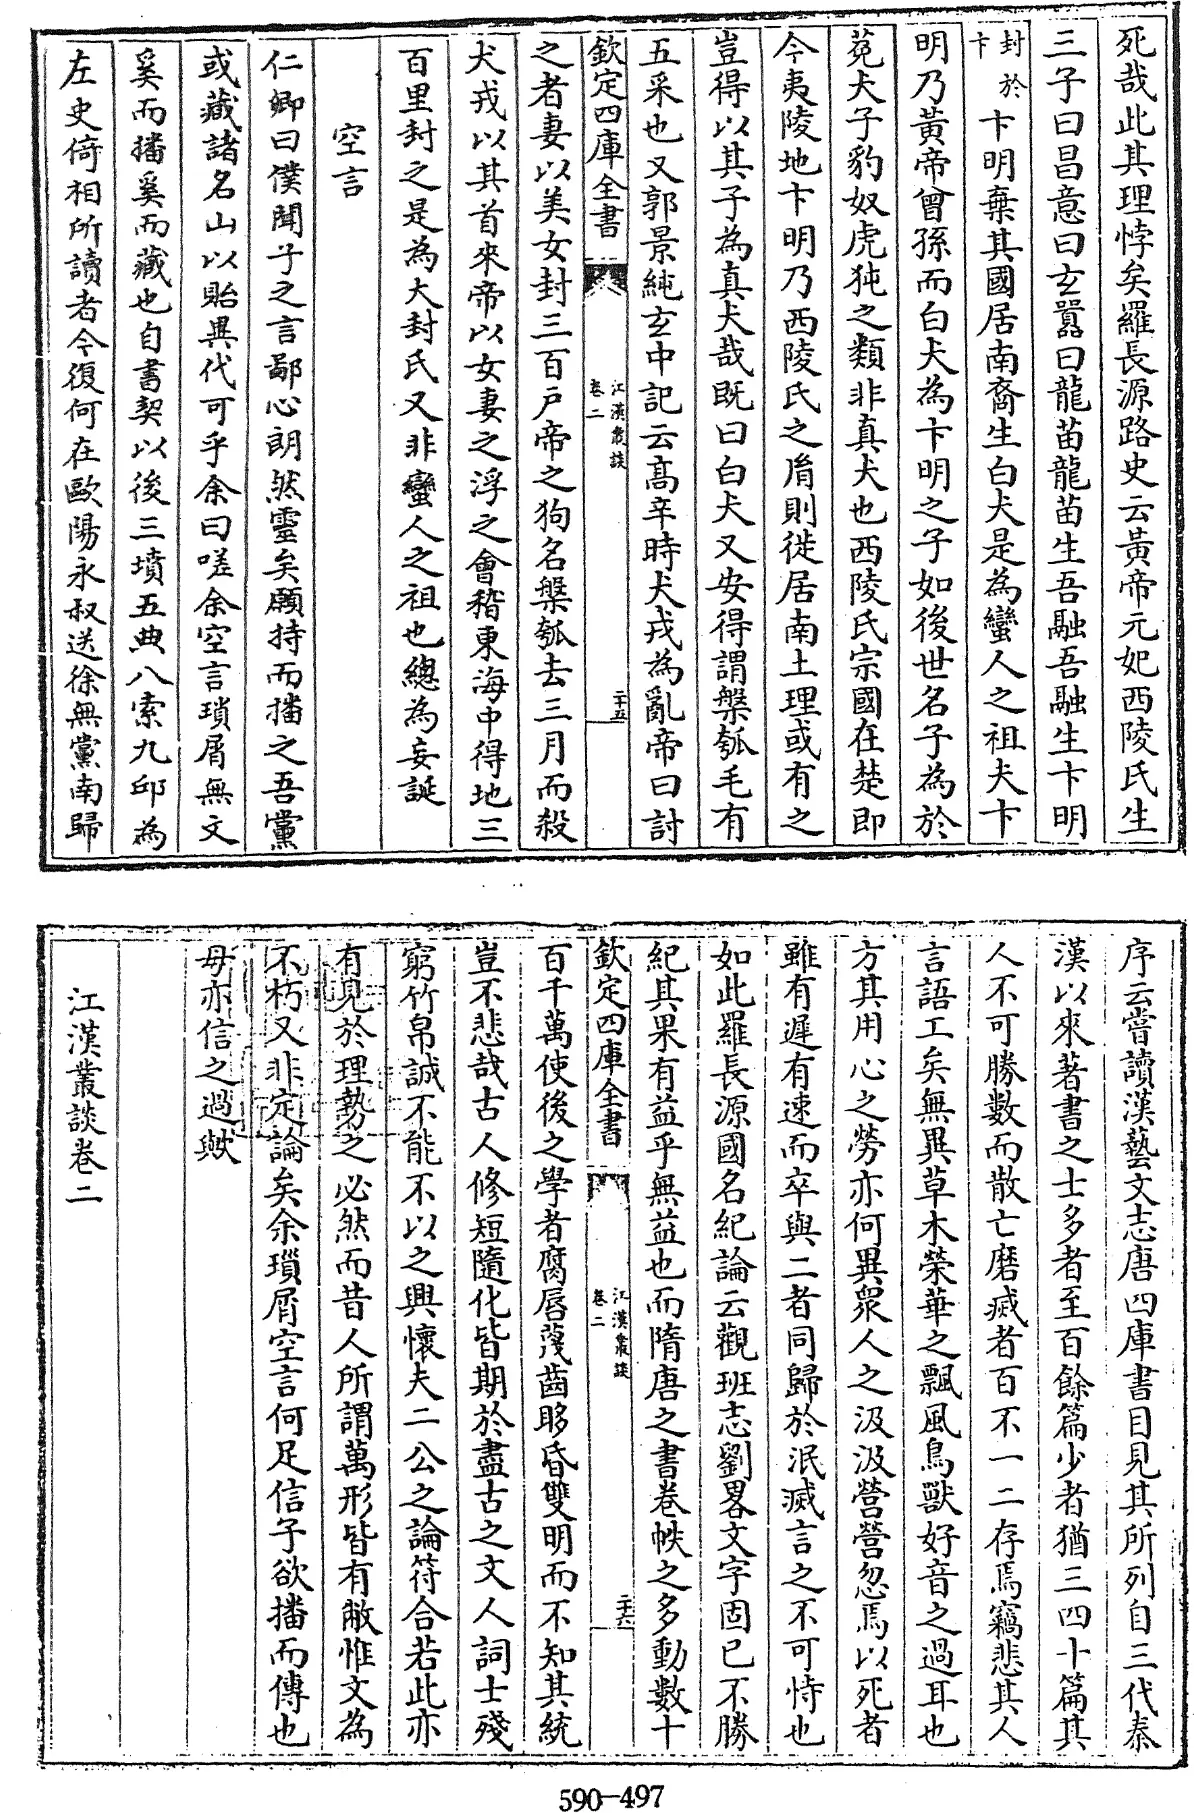 死哉此其理悖矣羅長源路史云黃帝元妃西陵氏生
三子曰昌意曰玄囂曰龍苗龍苗生吾融吾融生卞明
封於卞
卞明棄其國居南裔生白犬是為蠻人之祖夫卞
明乃黃帝曾孫而白犬為卞明之子如後世名子為於
菟犬子豹奴虎㹠之類非真犬也西陵氏宗國在楚即
今夷陵地卞明乃西陵氏之胤則徙居南土理或有之
豈得以其子為真犬哉既曰白犬又安得謂槃瓠毛有
五采也又郭景純玄中記云高辛時犬戎為亂帝曰討
欽定四庫全書
江漢叢談
卷二
二十五
之者妻以美女封三百戶帝之狗名槃瓠去三月而殺
犬戎以其首來帝以女妻之浮之會稽東海中得地三
百里封之是為犬封氏又非蠻人之祖也總為妄誕
空言
仁卿曰僕聞子之言鄙心朗然靈矣願持而播之吾黨
或藏諸名山以貽異代可乎余曰嗟余空言瑣屑無文
奚而播奚而藏也自書契以後三墳五典八索九邱為
左史倚相所讀者今復何在歐陽永叔送徐無黨南歸
序云嘗讀漢藝文志唐四庫書目見其所列自三代秦
漢以來著書之士多者至百餘篇少者猶三四十篇其
人不可勝數而散亡磨滅者百不一二存焉竊悲其人
言語工矣無異草木榮華之飄風鳥獸好音之過耳也
方其用心之勞亦何異眾人之汲汲營營忽焉以死者
雖有遲有速而卒與二者同歸於泯滅言之不可恃也
如此羅長源國名紀論云觀班志劉畧文字固已不勝
紀其果有益乎無益也而隋唐之書卷帙之多動數十
欽定四庫全書
江漢叢談
卷二
二十六
百千萬使後之學者腐唇蔑齒眵昏雙明而不知其統
豈不悲哉古人修短隨化皆期於盡古之文人詞士殘
窮竹帛誠不能不以之興懷夫二公之論符合若此亦
有見於理勢之必然而昔人所謂萬形皆有敝惟文為
不朽又非定論矣余瑣屑空言何足信子欲播而傳也
毋亦信之過歟
江漢叢談卷二
590-497